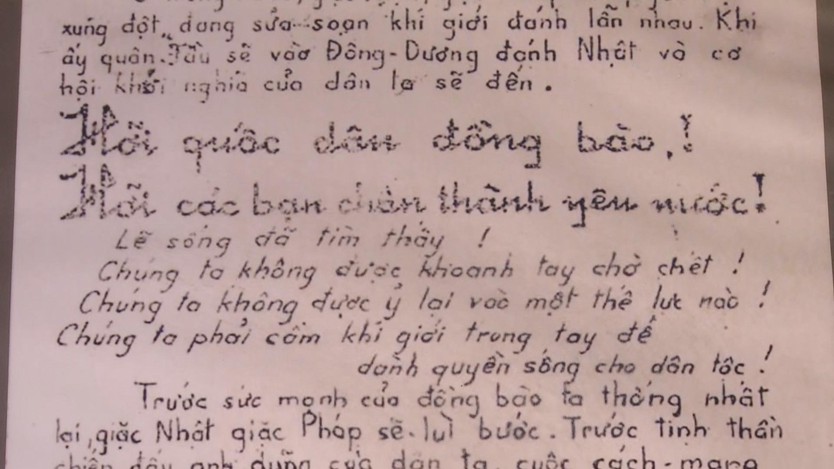 xung đột, đang sửa-soạn khí giới đánh lẫn nhau. Khi
ấy quân-Tầu sẽ vào Đông-Dương đánh Nhật và cơ
hội khởi nghĩa của dân ta sẽ đến.
Hỡi quốc dân đồng bào,!
Hỡi các bạn chân thành yêu nước!
Lẽ sống đã tìm thấy !
Chúng ta không được khoanh tay chờ chết !
Chúng ta không được ỷ lại vào một thế lực nào !
Chúng ta phải cầm khí giới trong tay để
dành quyền sống cho dân tộc !
Trước sức mạnh của đồng bào ta thống nhất
lại, giặc Nhật giặc Pháp sẽ-lùi bước. Trước tinh thần
chiến đấu anh dũng của dân ta, cuộc cách-mạng